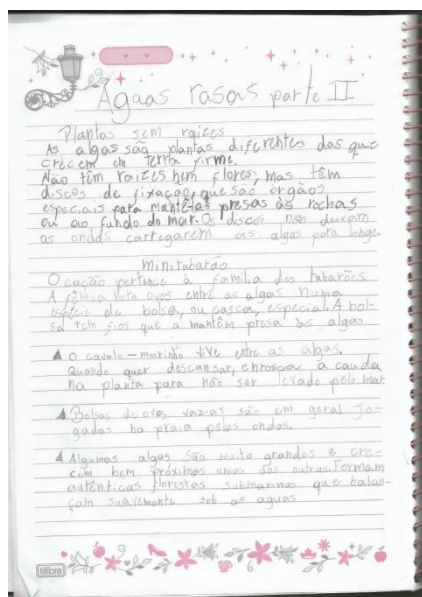 Aguas rasas parte II
Plantas sem raizes
As algas são plantas diferentes das que
crecem em terra firme.
Não têm raizes nem flores, mas têm
discos de fixação, que são órgãos
especiais para mantê-las presas às rochas
ou ao fundo do mar. Os discos não deixam
as ondas carregarem as algas para longe
Minitubarão
O cação pertence à família dos tubarões.
A fêmea bota ovos entre as algas numa
espécie de bolsa, ou casca, especial. A bol-
sa tem fios que a mantêm presa às algas
O cavalo-marinho vive entre as algas.
Quando quer descansar, enrosca a cauda
na planta para não ser levado pelo mar.
Bolsas de ovos vazias são em geral jo-
gadas na praia pelas ondas.
Algumas algas são muito grandes e cre-
cem bem próximas umas das outras. Formam
autênticas florestas submarinas que balan-
çam suavemente sob as aguas
tilibra